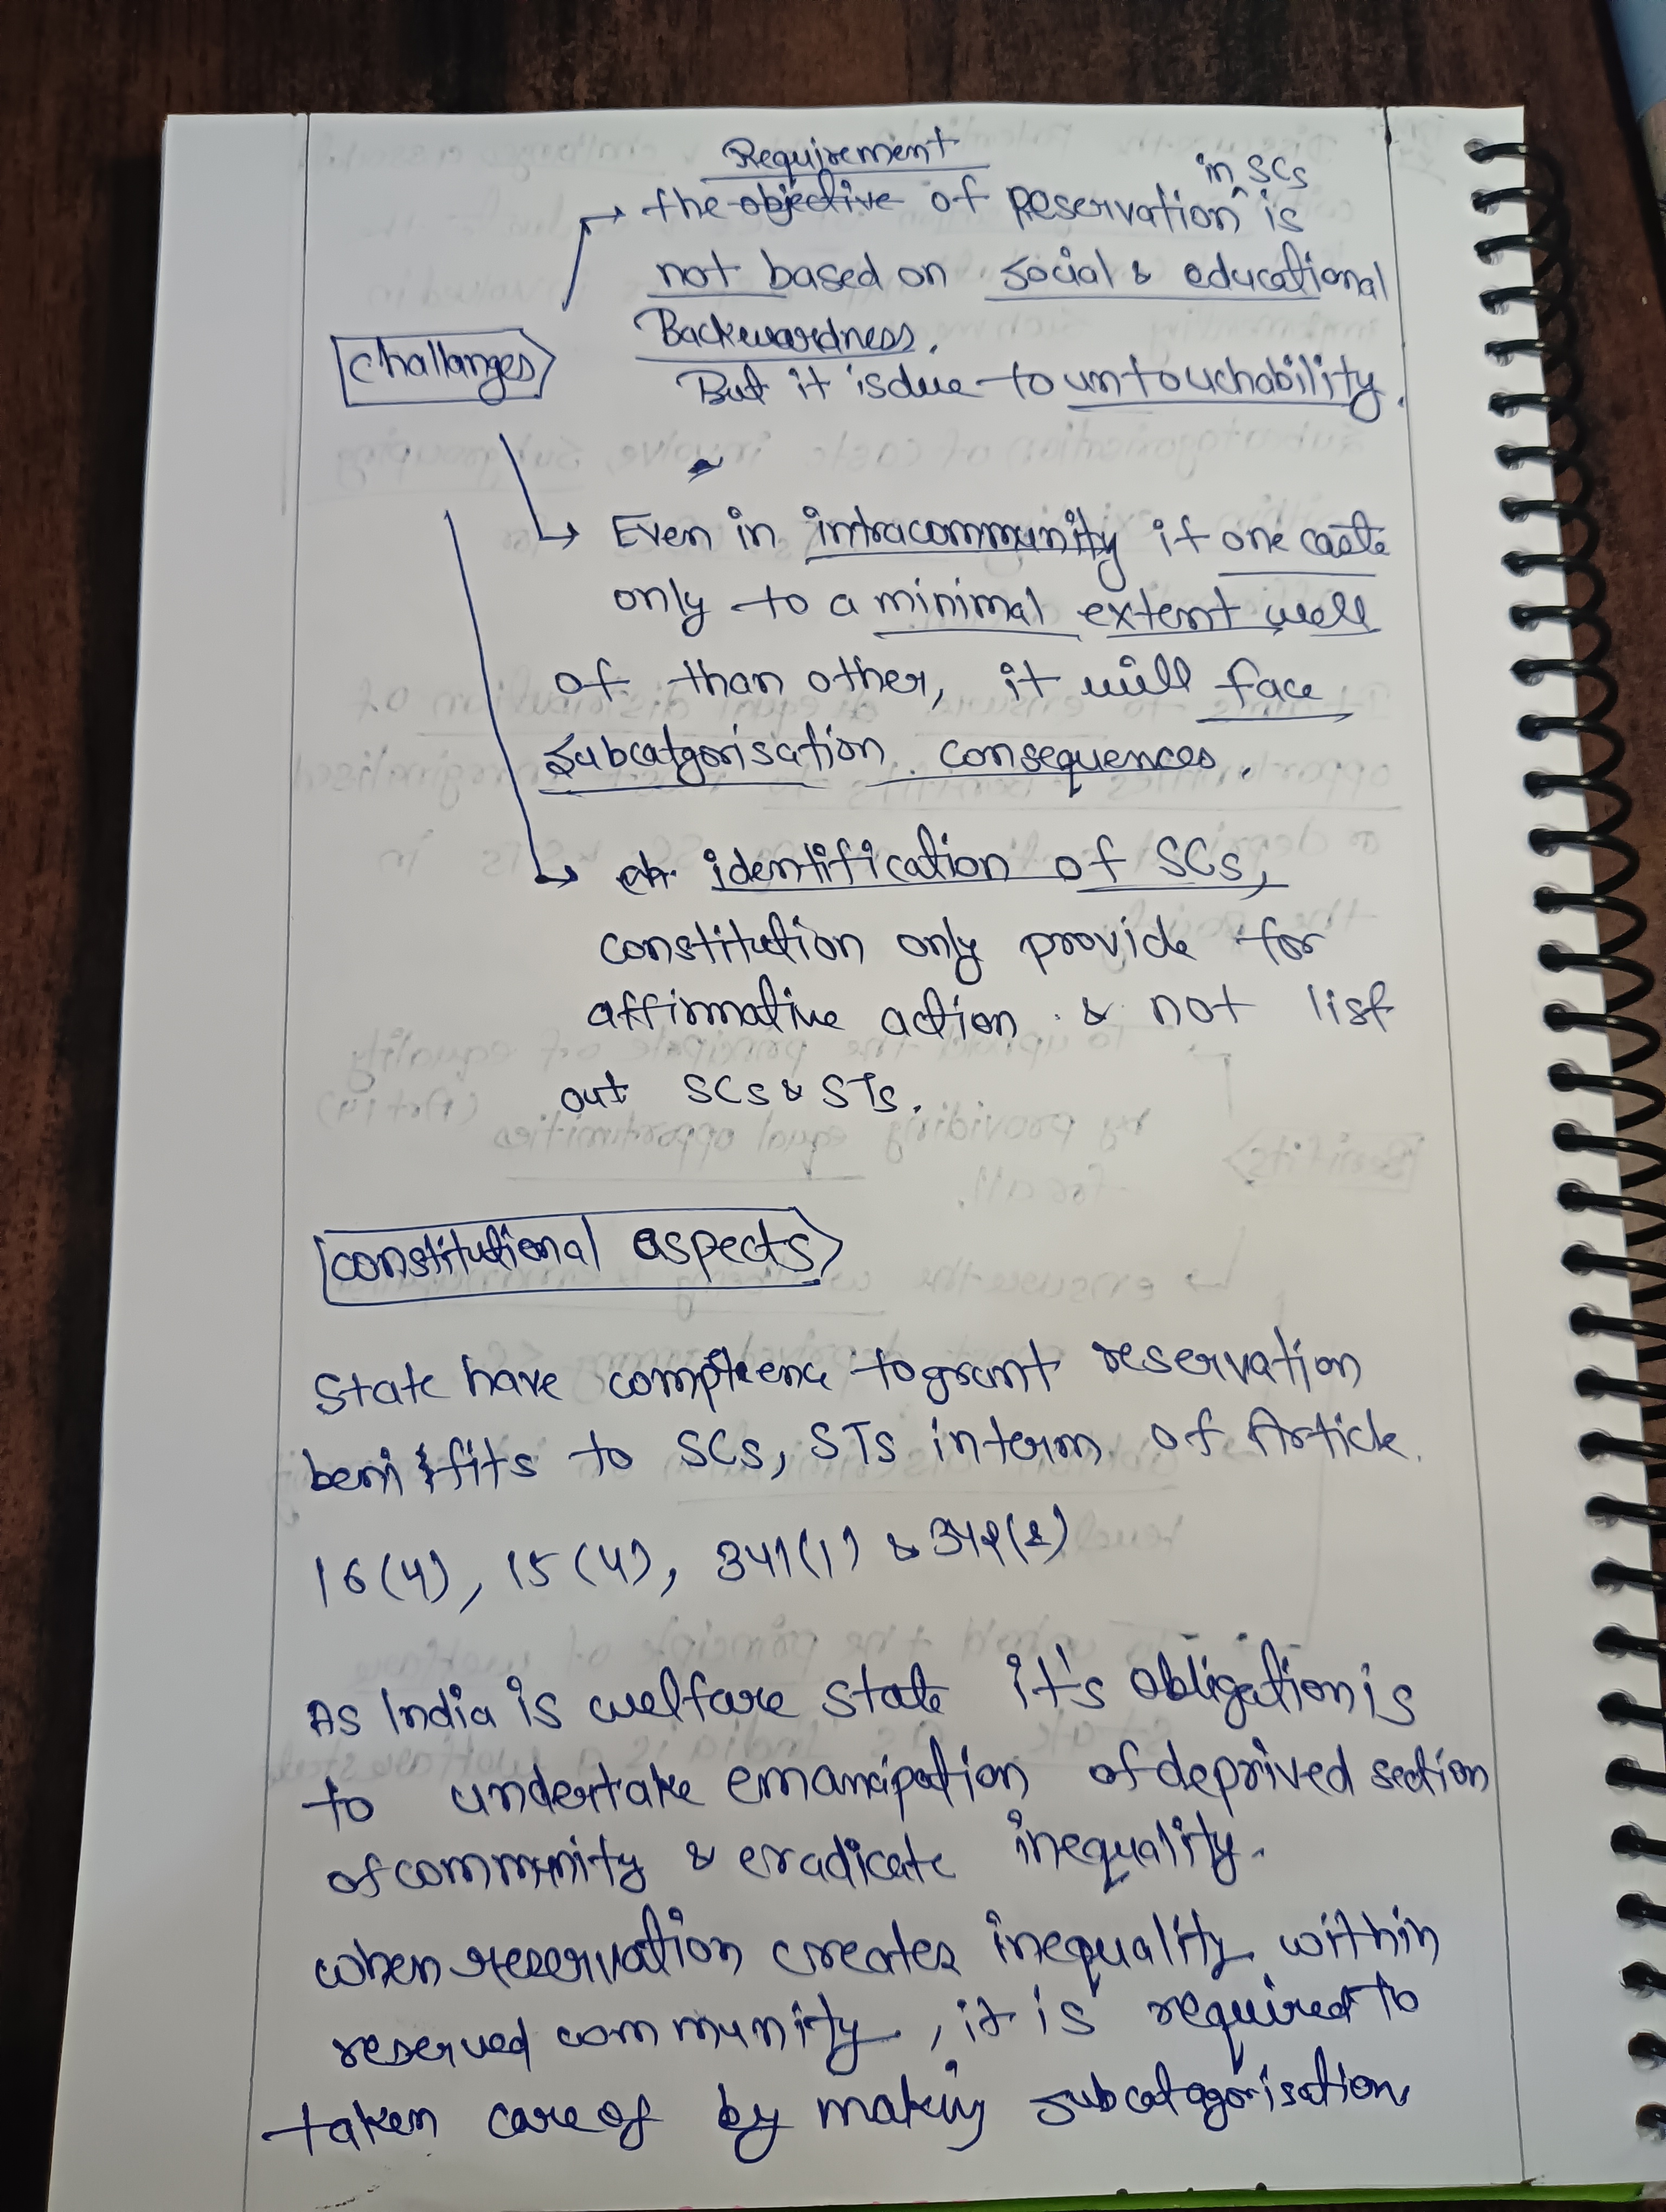 Requirement
the objective of Reservation in SCs is
not based on social & educational
Backwardness.
But it is due to untouchability.
challanges
Even in intracommunity if one caste
only to a minimal extent well
of than other, it will face
subcatgorisation consequences.
identification of SCs,
constitution only provide for
affirmative action & not list
out SCs & STs.
constitutional aspects
State have compteenc to grant reservation
benifits to SCs, STs interm of Article
16(4), 15(4), 341(1) & 342(2)
As India is welfare state it's obligation is
to undertake emancipation of deprived section
of community & eradicate inequality.
when reservation creates inequality within
reserved community, it is required to
taken care of by making subcatagorisation